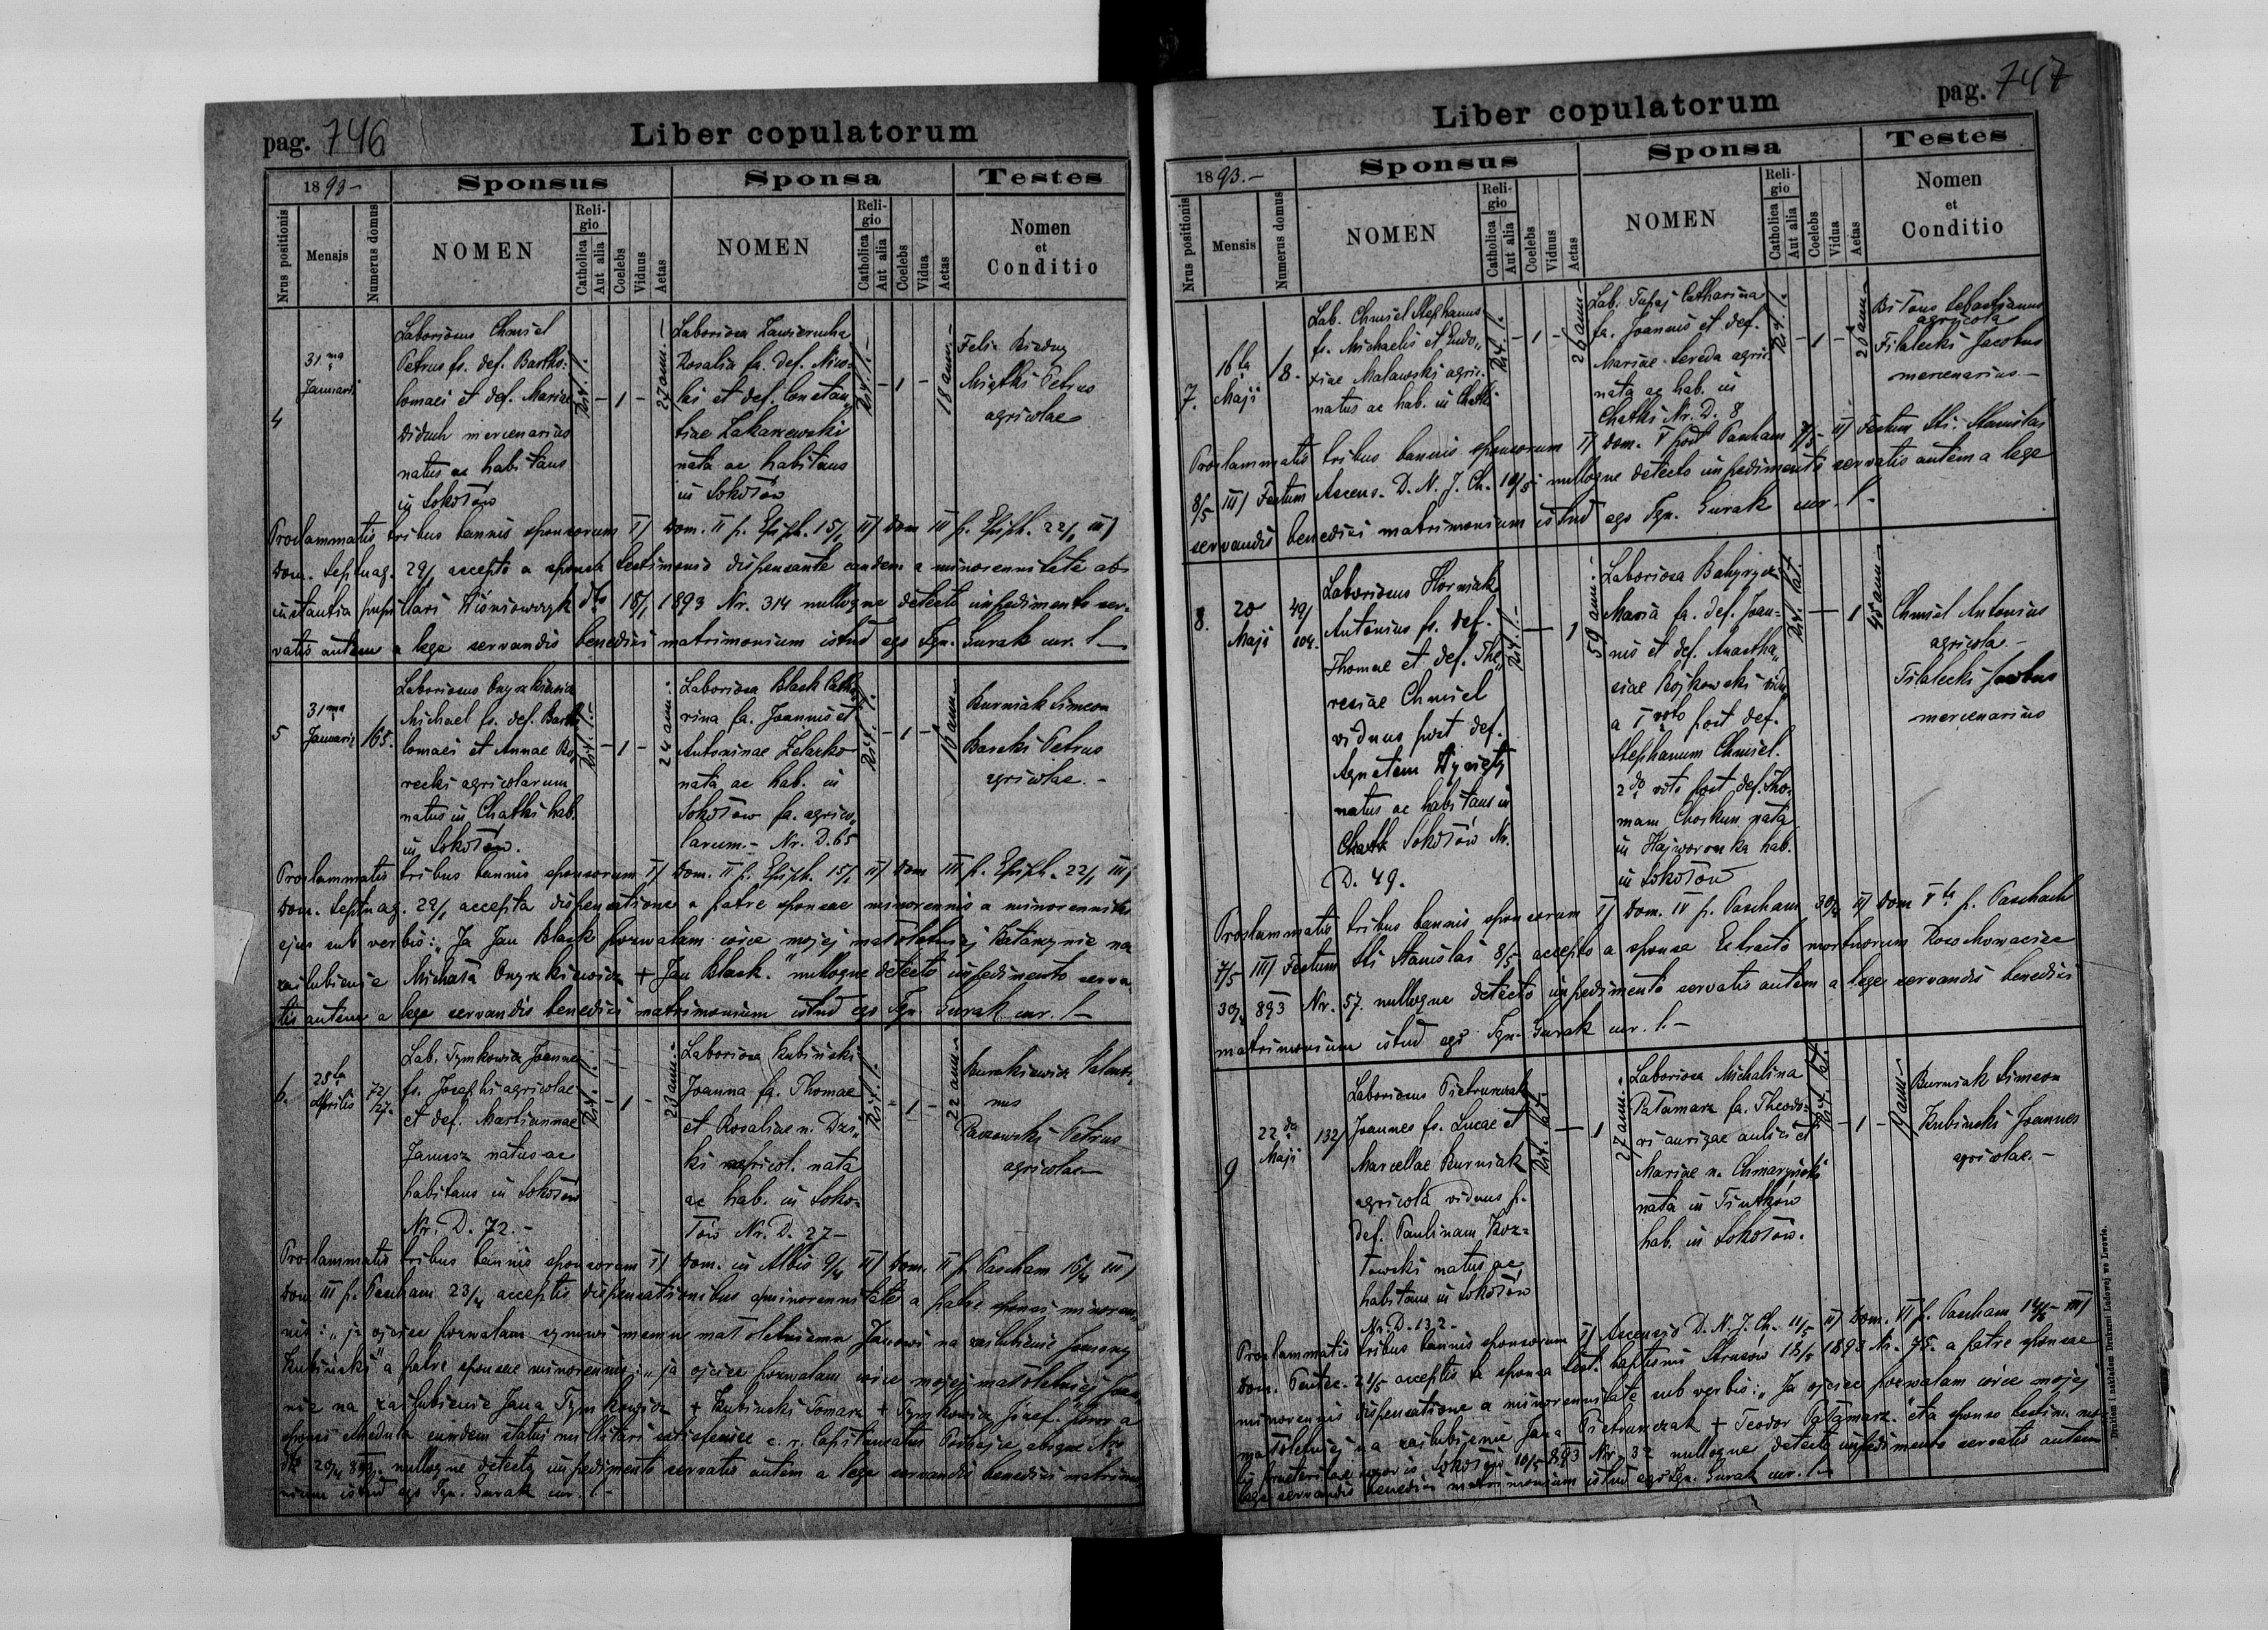 pag. 746
Liber copulatorum
1893-
Sponsus
Sponsa
Testes
Nrus positionis
Mensis
Numerus domus
NOMEN
Religio
Catholica
Aut alia
Coelebs
Viduus
Aetas
NOMEN
Religio
Catholica
Aut alia
Coelebs
Vidua
Aetas
Nomen
et
Conditio
4
31ma
Januarii
Laboriosus Chmiel
Petrus fs. def. Bartho-
lomaei et def. Mariae
Diduch mercenarius
natus ac habitans
in Sokołów
Rit. l.
- 1 -
27 ann.
Laboriosa Zawierucha
Rosalia fa. def. Nico-
lai et def. Constan-
tiae Zakrzewski
nata ac habitans
in Sokołów
Rit. l.
- 1 -
18 ann.
Felix Biedny
Petrus
agricolae
Proclammatis tribus bannis sponsorum I) Dom. II p. Epiph. 15/1 II) Dom III p. Epiph. 22/1 III)
Dom. Septuag. 29/1 accepto a sponsa testimonio dispensante eandem a minorennitate ab
instantia pupillari Wiśniowczyk dto 18/1 1893 Nr. 314 nulloque detecto impedimento ser-
vatis autem a lege servandis benedixi matrimonium istud ego Ign. Gurak cur. l.
5
31ma
Januarii
65.
Laboriosus Onyszkiewicz
Michael fs. def. Bartho
lomaei et Annae Bo-
recki agricolarum
natus in Chatki hab.
in Sokołów.
Rit. l.
- 1 -
24 ann.
Laboriosa Black Catha
rina fa. Joannis et
Antoninae Zelazko
nata ac hab. in
Sokołów fa. agrico-
larum.- Nr. D. 65
Rit. l.
- 1 -
ann.
Burniak Simeon
Barski Petrus
agricolae.-
Proclammatis tribus bannis sponsorum I) Dom. II p. Epiph. 15/1 II) Dom III p. Epiph. 22/1 III)
Dom. Septuag. 29/1 accepta dispensatione a patre sponsae minorennis a minorennitate
ejus sub verbis: "Ja Jan Black pozwalam córce mojej małoletniej Katarzynie na
zaślubienie Michała Onyszkiewicza + Jan Black." nulloque detecto impedimento serva-
tis autem a lege servandis benedixi matrimonium istud ego Ign. Gurak cur. l.
6.
25ta
Aprilis
72/
27.
Lab. Tymkowicz Joannes
fs. Josephi agricolae
et def. Martiannae
Janusz natus ac
habitans in Sokołów
Nr. D. 72.-
Rit. l.
- 1 -
23 ann.
Laboriosa Kubiński
Joanna fa. Thomae
et Rosaliae n. Dzi-
ki agricol. nata
ac hab. in Soko-
łów Nr. D. 27-
Rit. l.
- 1 -
22 ann.
Valenti
nus
Petrus
agricolae
Proclammatis tribus bannis sponsorum I) Dom. in Albis 9/4 II) Dom. II p. Pascham 16/4 III)
Dom III p. Pascham 23/4 acceptis dispensationibus a minorennitate a patre sponsi minoren-
nis: "ja ojciec pozwalam synowi memu małoletniemu Janowi na zaślubienie Joanny
Kubiński" a patre sponsae minorennis: "ja ojciec pozwalam córce mojej małoletniej Joan-
nie na zaślubienie Jana Tymkowicza + Kubinski Tomasz + Tymkowicz Józef.
sponsi schedula eundem statui militari satisfecisse c. r. Capitaneatus Podhajce
dto 20/4 893. nulloque detecto impedimento servatis autem a lege servandis benedixi matrimo
nium istud ego Ign. Gurak cur. l.-
pag. 747
Liber copulatorum
1893.-
Sponsus
Sponsa
Testes
Nrus positionis
Mensis
Numerus domus
NOMEN
Religio
Catholica
Aut alia
Coelebs
Viduus
Aetas
NOMEN
Religio
Catholica
Aut alia
Coelebs
Vidua
Aetas
Nomen
et
Conditio
7.
16ta
Maji
8.
Lab. Chmiel Stephanus
fs. Michaelis et Eudo-
xiae Malawski agric.
natus ac hab. in Chatki
Rit. l.
- 1 -
26 ann.
Lab. Tupaj Catharina
fa. Joannis et def.
Mariae Sereda agric.
nata ac hab. in
Chatki Nr. D. 8
Rit. l.
- 1 -
20 ann.
Sebastianus
agricola
Filalecki Jacobus
mercenarius.-
Proclammatis tribus bannis sponsorum I) Dom. V post Pascham 7/5 II) Festum Sti. Stanislai
8/5 III) Festum Ascens. D. N. J. Ch. 11/5 nulloque detecto impedimento servatis autem a lege
servandis benedixi matrimonium istud ego Ign. Gurak cur. l.-
8.
20
Maji
49/
104.
Laboriosus Horniak
Antonius fs. def.
Thomae et def. The-
resiae Chmiel
viduus post def.
Agnetem
natus ac habitans in
Sokołów Nr.
D. 49.
Rit. l.
- 1
59 ann.
Laboriosa
Maria fa. def. Joan-
nis et def. Anasta-
siae Rojkowski vidu
a I voto post def.
Stephanum Chmiel.
2do voto post def. Tho-
mam nata
in Hajworonka hab.
in Sokołów
Rit. lat.
- 1
45 ann.
Chmiel Antonius
agricola.-
Filalecki Jacobus
mercenarius
Proclammatis tribus bannis sponsorum I) Dom. IV p. Pascham 30/4 II) Dom Vta p. Pascham
7/5 III) Festum Sti Stanislai 8/5 accepto a sponsa Extracto mortuorum
30/4 893 Nr. 57. nulloque detecto impedimento servatis autem a lege servandis benedixi
matrimonium istud ego Ign. Gurak cur. l.-
9
22da
Maji
132/
Laboriosus Pietruszczak
Joannes fs. Lucae et
Marcellae Burniak
agricola viduus p.
def. Paulinam Koz-
łowski natus ac
habitans in Sokołów
Nr. D. 132-
Rit. lat.
- 1
27 ann.
Laboriosa Michalina
Patamarz fa. Theodo-
ri aurigae aulici et
Mariae n.
nata in Tiutków
hab. in Sokołów.
Rit. lat.
- 1 -
19 ann.
Burniak Simeon
Kubinski Joannes
agricolae.-
Proclammatis tribus bannis sponsorum I) Ascensio D. N. J. Ch. 11/5 II) Dom. VI p. Pascham 14/5 III)
Dom. Pentec. 21/5 acceptis a sponsa test. baptismi Strusow 18/5 1893 Nr. 75. a patre sponsae
minorennis dispensatione a minorennitate sub verbis: "Ja ojciec pozwalam córce mojej
małoletniej na zaślubienie Jana Pietruszczak + Teodor Patamarz." et a sponso testim. mor
Sokołów 10/5 893 Nr. 32 nulloque detecto impedimento servatis autem
lege servandis benedixi matrimonium istud ego Ign. Gurak cur. l.
Drukiem i nakładem Drukarni Ludowej we Lwowie.